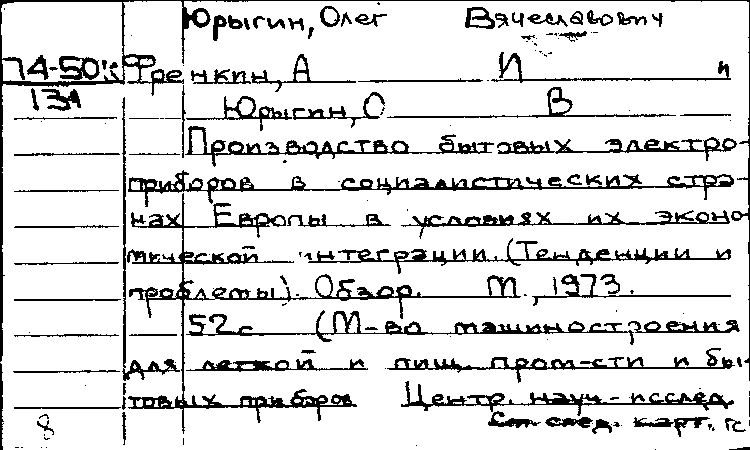 Юрыгин, Олег Вячеславович
74-50
Френкин, А И и
131
Юрыгин, О В
Производство бытовых электро-
приборов в социалистических стра-
нах Европы в условиях их эконо-
мической интеграции. (Тенденции и
проблемы). Обзор. М, 1973.
52с (М-во машиностроения
для легкой и пищ. пром-сти и бы-
товых приборов Центр. науч-исслед.
8 См. след. карт.